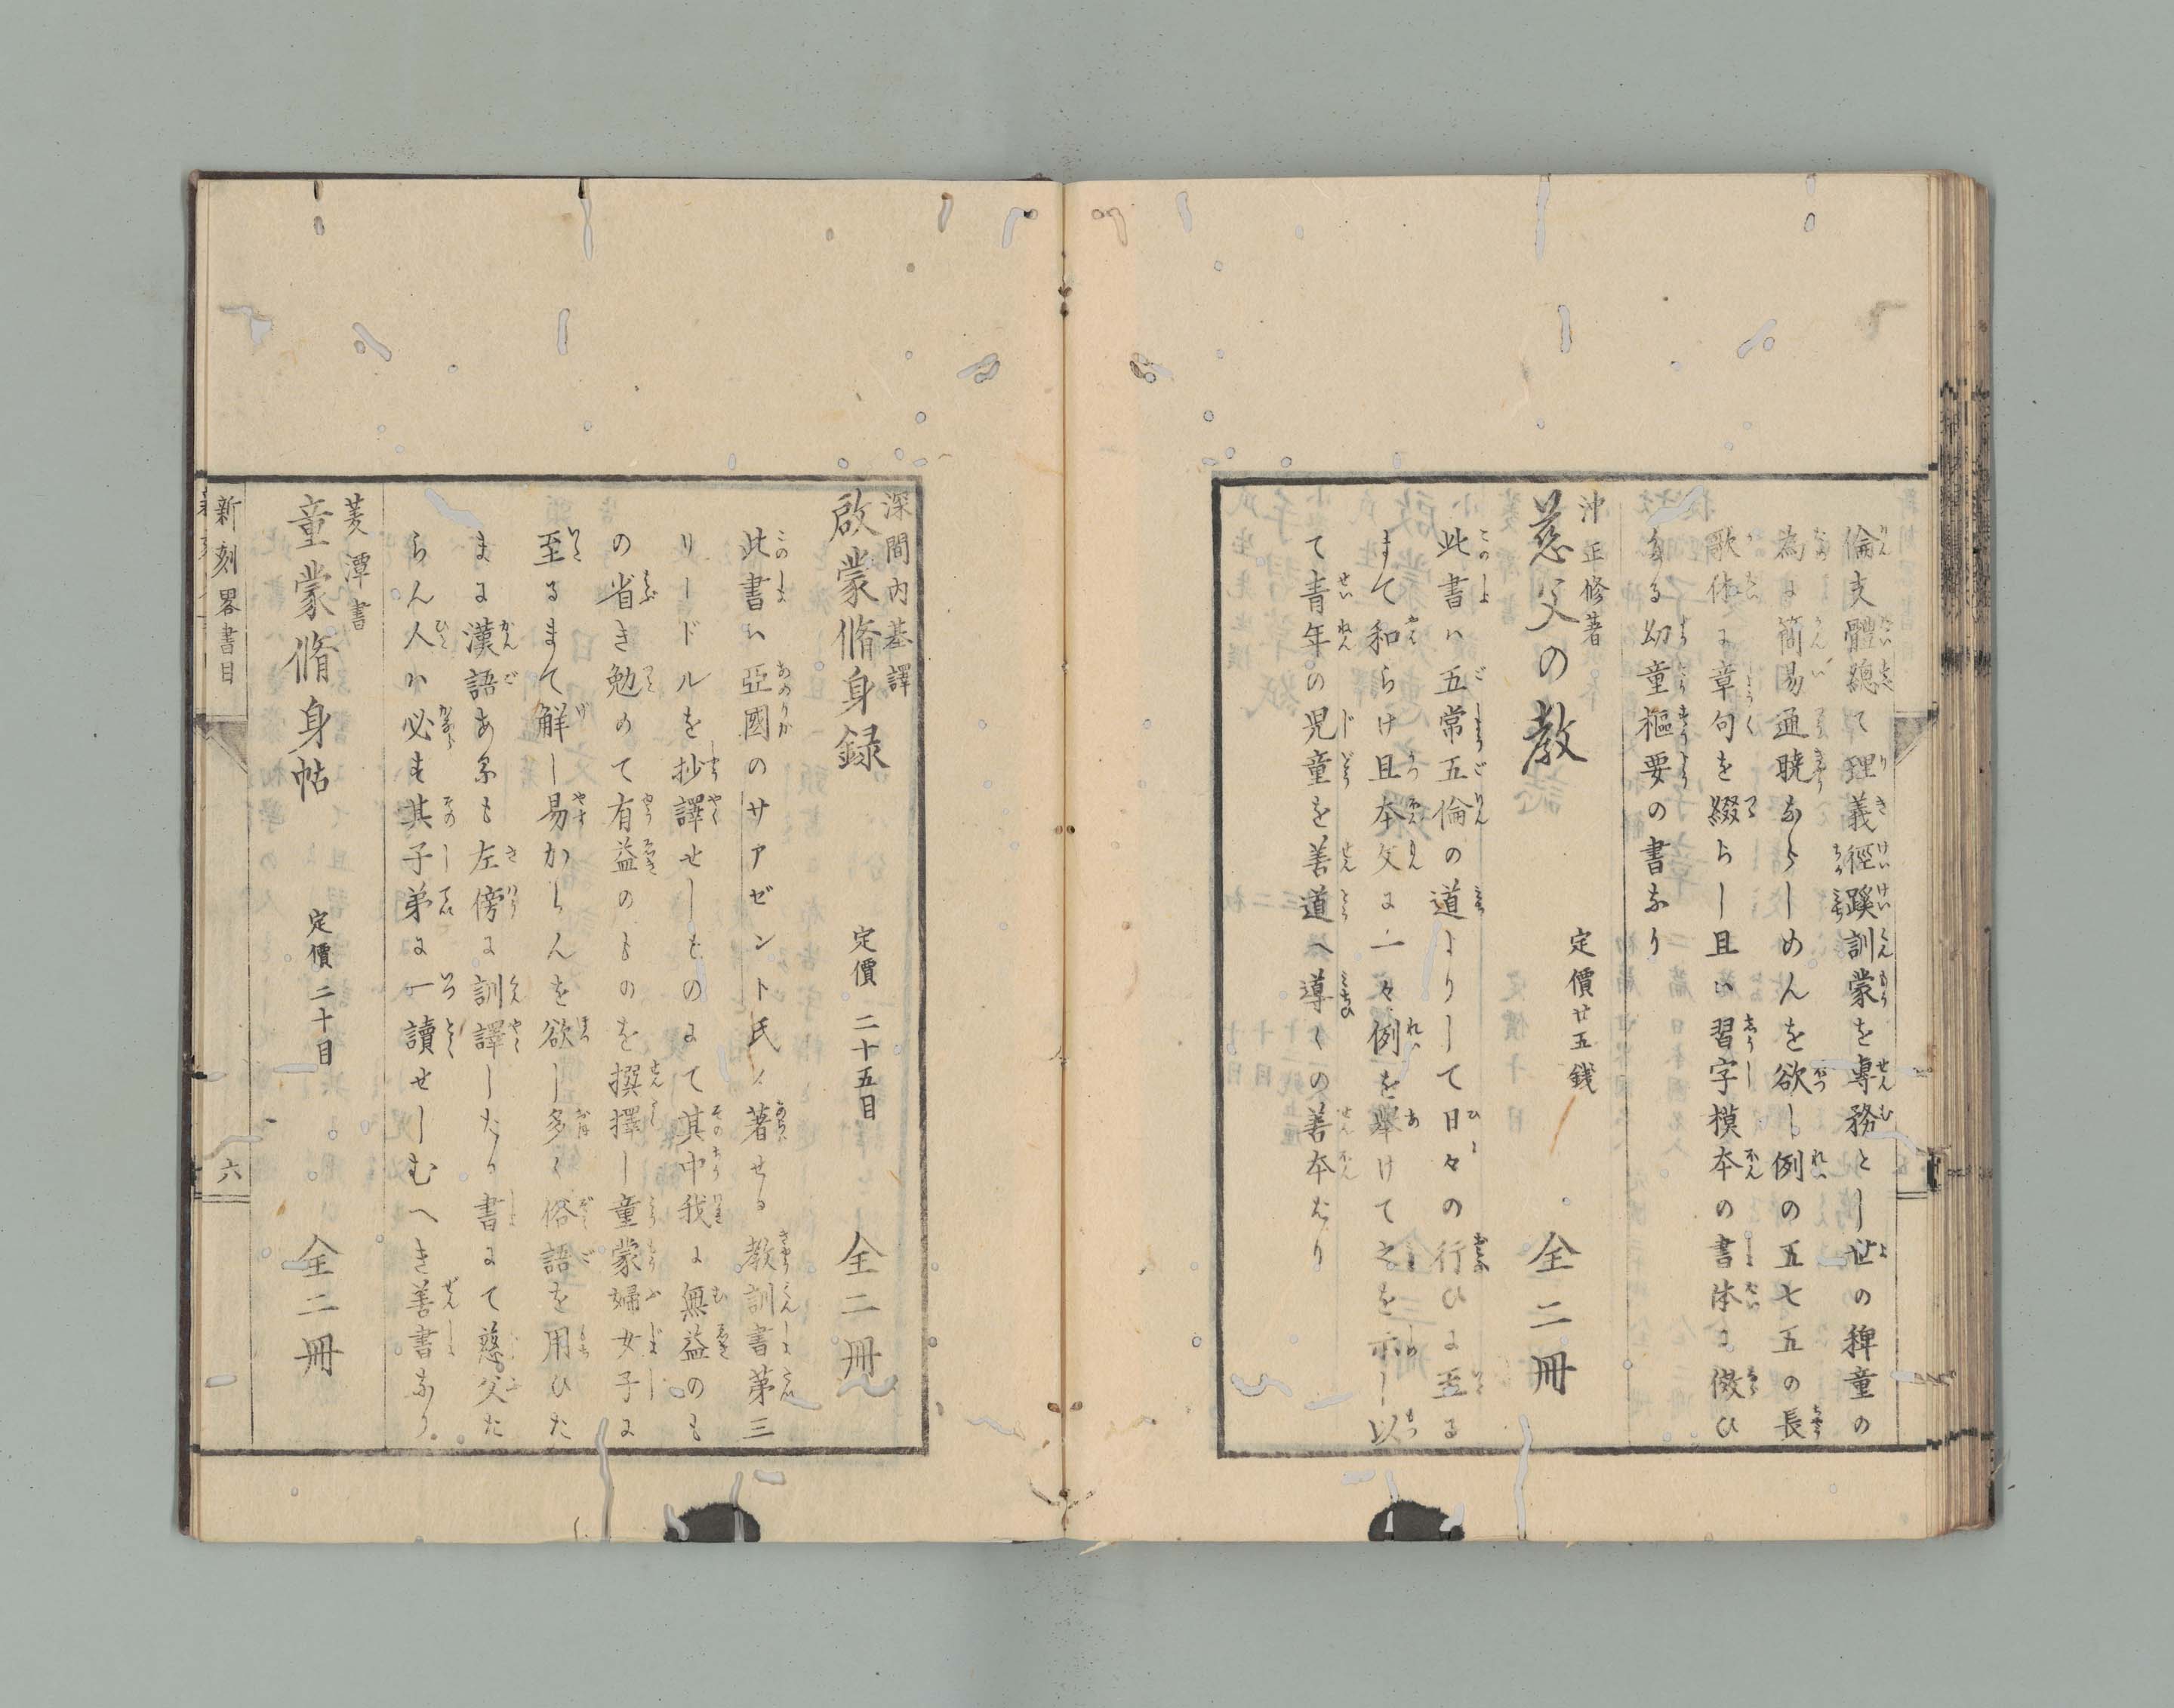 倫支體總て理義徑蹊訓蒙を專務とし世の稗童の
為に簡易通曉ならしめんを欲し例の五七五の長
歌体に章句を綴らし且ハ習字模本の書体に傚ひ
たる幼童樞要の書なり
沖正修著
慈父の教 定價廿五銭 全二冊
此書ハ五常五倫の道よりして日々の行ひに至る
まて和らけ且本文に一々例を舉けて之を示し以
て青年の児童を善道へ導くの善本なり
深間内基譯
啟蒙脩身録 定價二十五目 全二冊
此書ハ亞國のサアゼント氏ノ著せる教訓書第三
リードルを抄譯せしものにて其中我に無益のも
の省き勉めて有益のものを撰擇し童蒙婦女子に
至るまて解し易からんを欲し多く俗語を用ひた
まに漢語あるも左傍に訓譯したる書にて慈父た
らん人ハ必す其子弟に一讀せしむへき善書なり
菱潭書
童蒙脩身帖 定價二十目 全二冊
新刻畧書目 六